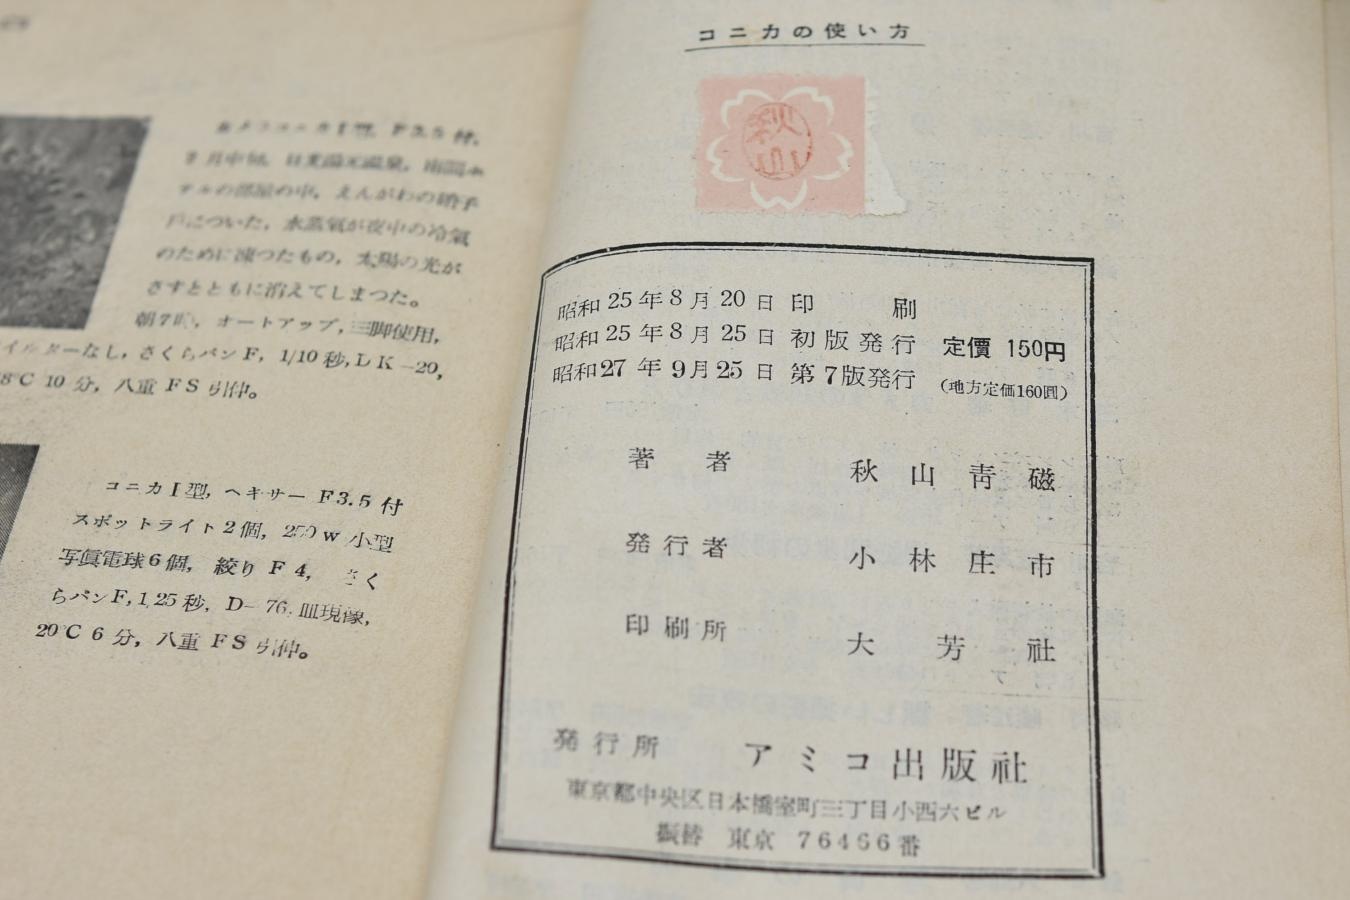 コニカの使い方
秋山
昭和25年8月20日 印刷
昭和25年8月25日 初版発行
昭和27年9月25日 第7版発行
定價 150円
(地方定価160圓)
著者 秋山靑磁
発行者 小林庄市
印刷所 大芳社
発行所 アミコ出版社
東京都中央区日本橋室町三丁目小西六ビル
振替 東京 76466番
カメラコニカI型, F3.5付,
テルの部屋の中, えんがわの硝子
戸についた, 水蒸氣が夜中の冷氣
のために凍つたもの, 太陽の光が
さすとともに消えてしまつた。
朝7時, オートアップ, 三脚使用,
イルターなし, さくらパンF, 1/10秒, DK-20,
8°C 10分, 八重FS引伸。
コニカI型, ヘキサーF3.5付
スポットライト2個, 250w小型
写眞電球6個, 絞りF4, さく
らパンF, 1/25秒, D-76, 皿現像,
20°C 6分, 八重FS引伸。